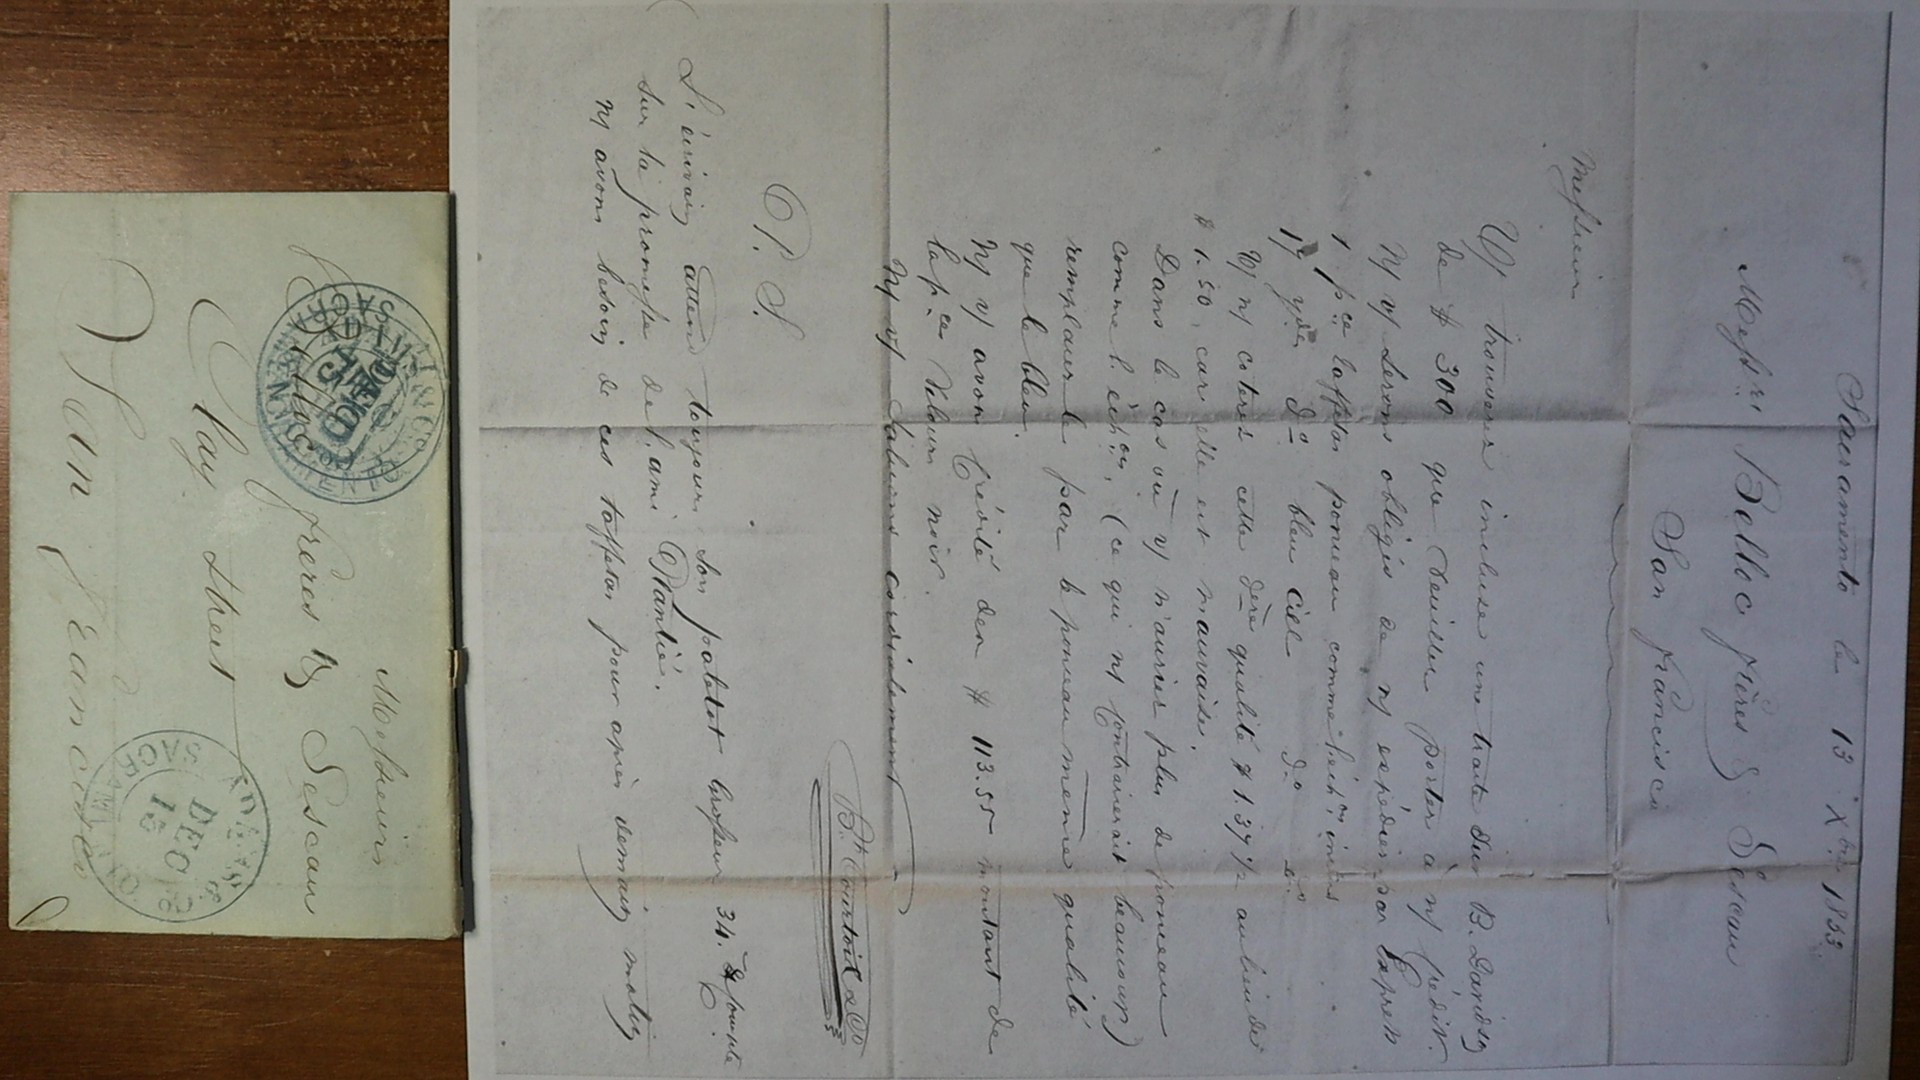 Sacramento le 13 Xbre 1853
Messrs Belloc frères & Sescau
San Francisco
Messieurs
Vs trouverez incluse une traite sur B. Davidson
de $ 300 que veuillez porter à n/ crédit.
Ns vs serons obligés de ns expédier par Express
1 pce taffetas ponceau comme l'échon inclus
17 yds do bleu ciel do do
Vs ns coterez cette dere qualité $ 1.37 1/2 au lieu de
$ 1.50, car elle est mauvaise.
Dans le cas où vs n'auriez plus de ponceau
comme l'échon, (ce qui ns contrarierait beaucoup)
remplacer le par le ponceau même qualité
que le bleu.
Ns vs avons crédité des $ 113.55 montant de
la pce velours noir.
Ns vs saluons cordialement
Bt Courtois & Co
P. S.
L'écrivain attend toujours son paletot grosseur 34. Il compte
sur la promesse de l'ami Plantié.
Ns avons besoin de ces taffetas pour après demain matin
Messieurs
Belloc frères & Sescau
Clay street
San Francisco
ADAMS & Co
SACRAMENTO
DEC
13
PAID